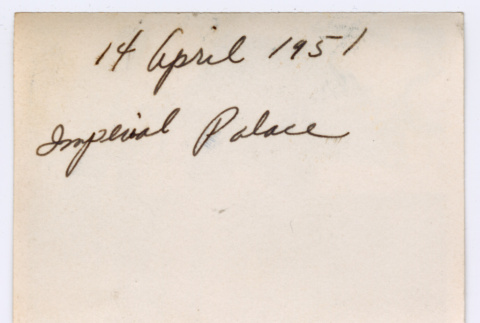 14 April 1951
Imperial Palace